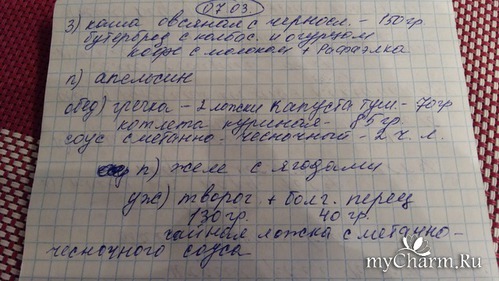 07.03.
3) каша овсяная с чернос. - 150гр
бутерброд с колбас. и огурцом
кофе с молоком + Рафаэлка
п) апельсин
обед) гречка - 2 ложки капуста туш. - 70гр
котлета куриная - 85 гр.
соус сметанно-чесночный - 2 ч. л.
п) желе с ягодами
уж) творог + болг. перец
130 гр. 40 гр.
чайная ложка сметанно-
чесночного соуса
myCharm.Ru